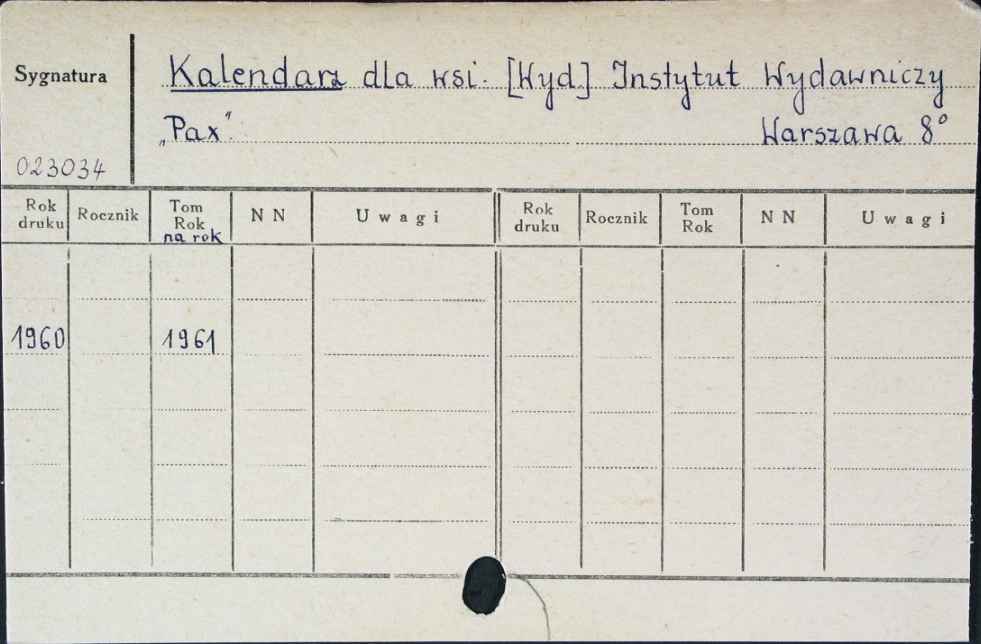 Sygnatura
Kalendarz dla wsi. [Wyd.] Instytut Wydawniczy
„Pax”. Warszawa 8°
023034
Rok druku Rocznik Tom Rok na rok N N Uwagi Rok druku Rocznik Tom Rok N N Uwagi
1960 1961